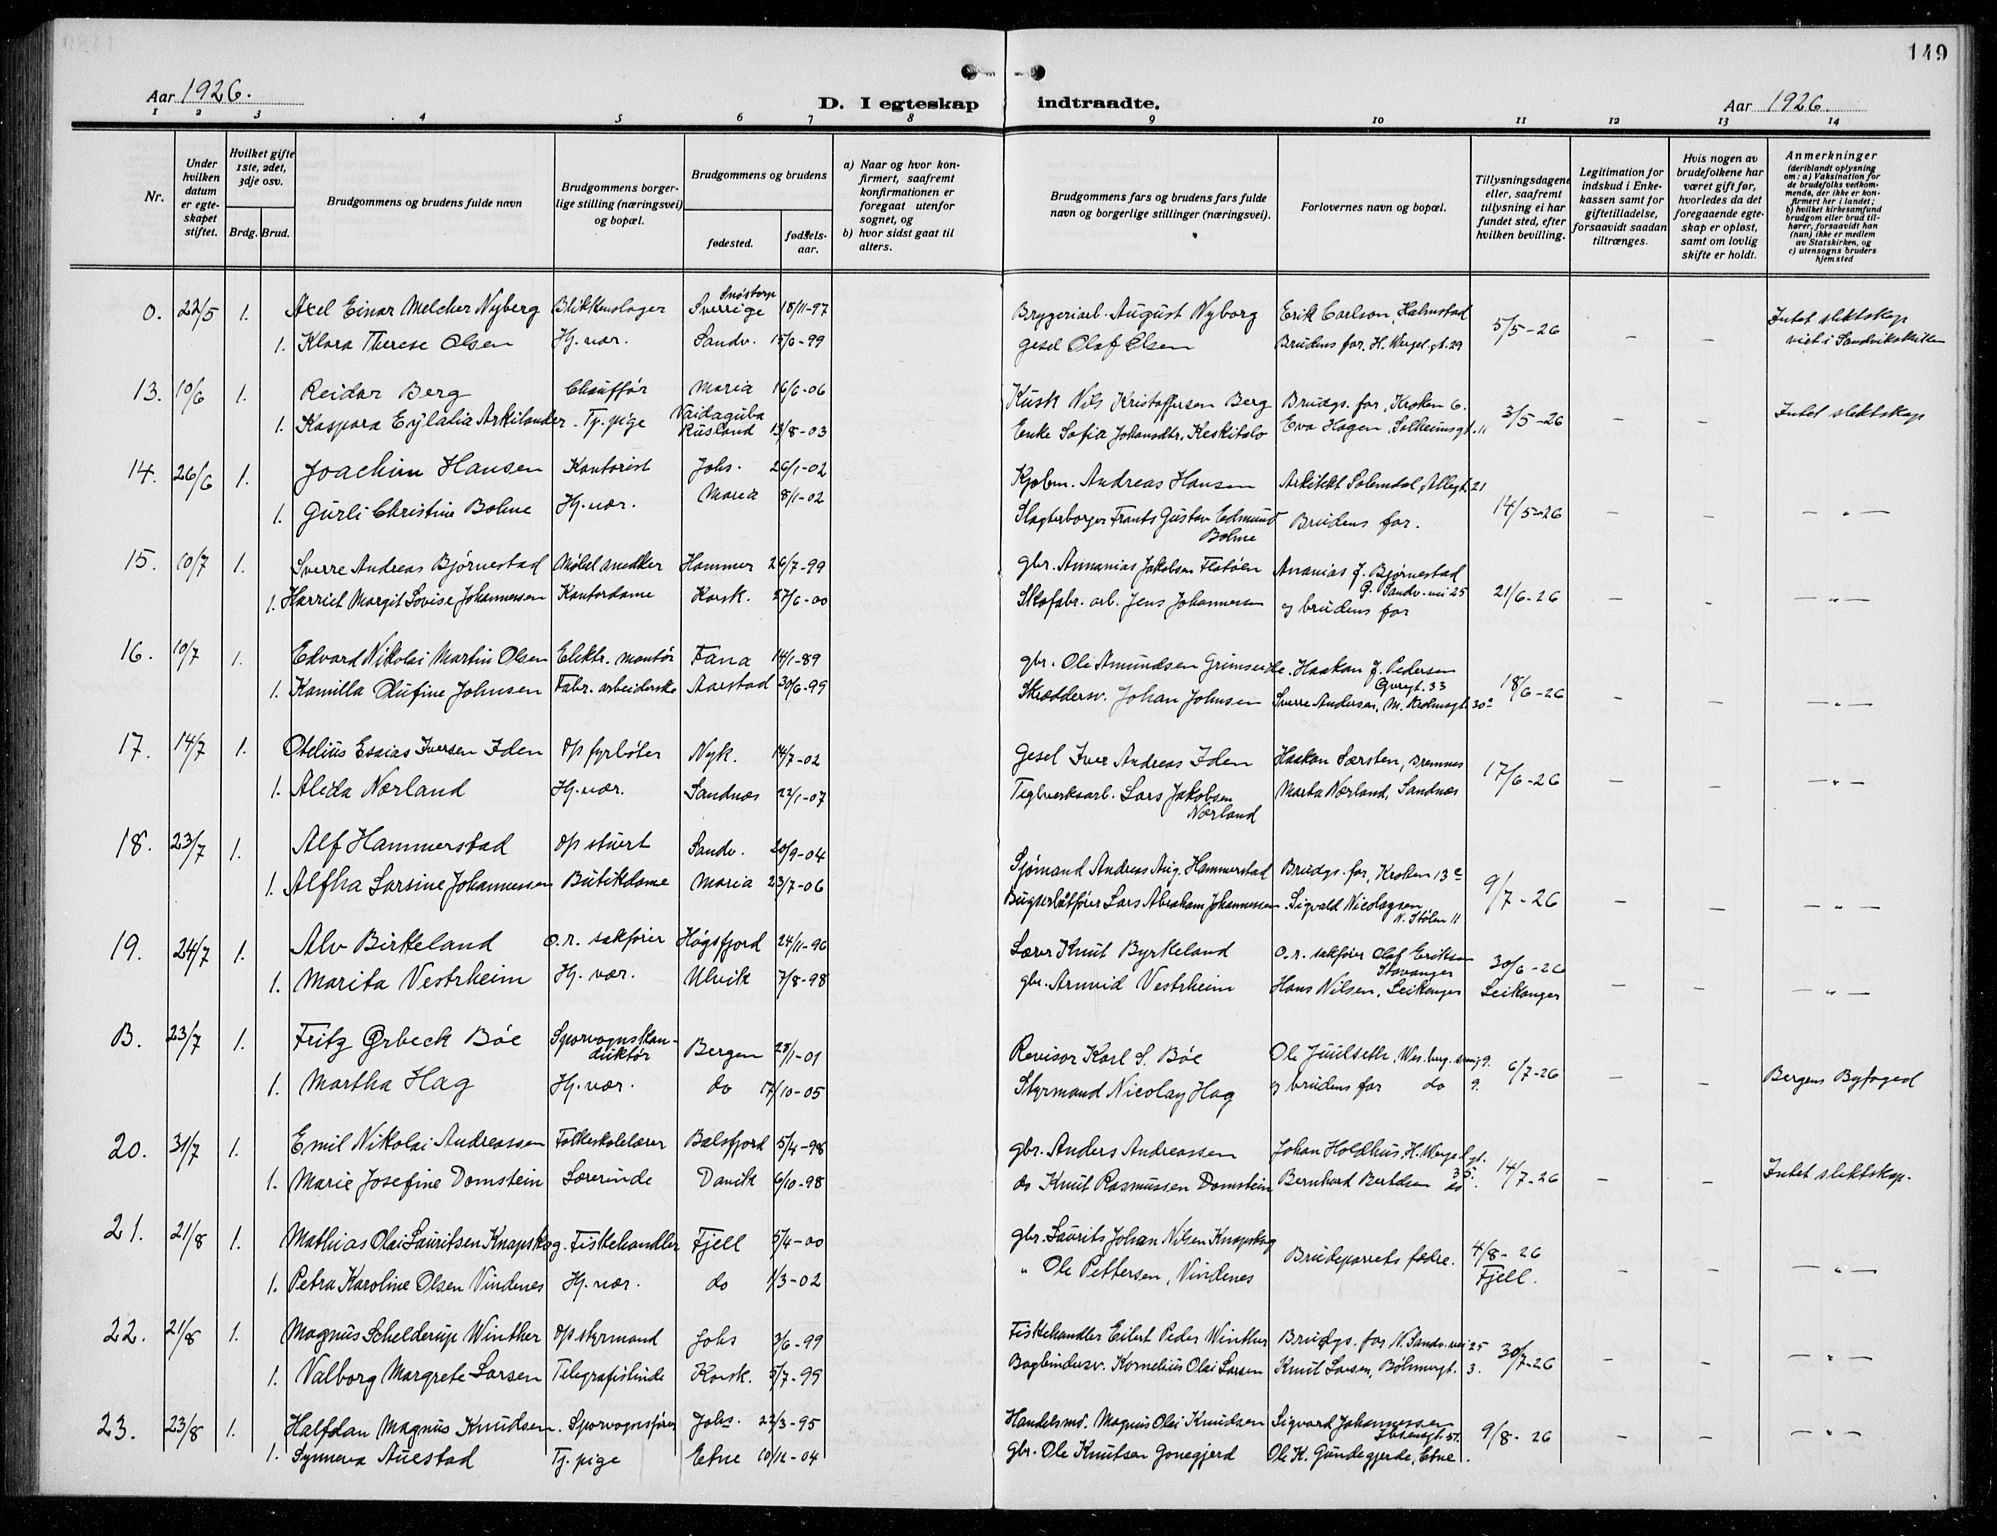 149
Aar 1926.
D. I egteskap indtraadte.
Aar 1926.
1 2 3 4 5 6 7 8 9 10 11 12 13 14
Nr.
Under hvilken datum er egteskapet stiftet.
Hvilket gifte 1ste, 2det, 3dje osv.
Brdg. Brud.
Brudgommens og brudens fulde navn
Brudgommens borgerlige stilling (næringsvei) og bopæl.
Brudgommens og brudens
fødested.
fødselsaar.
a) Naar og hvor konfirmert, saafremt konfirmationen er foregaat utenfor sognet, og
b) hvor sidst gaat til alters.
Brudgommens fars og brudens fars fulde navn og borgerlige stillinger (næringsvei).
Forlovernes navn og bopæl.
Tillysningsdagene eller, saafremt tillysning ei har fundet sted, efter hvilken bevilling.
Legitimation for indskud i Enkekassen samt for giftetilladelse, forsaavidt saadan tiltrænges.
Hvis nogen av brudefolkene har været gift før, hvorledes da det foregaaende egteskap er opløst, samt om lovlig skifte er holdt.
Anmerkninger (deriblandt oplysning om: a) Vaksination for de brudefolks vedkommende, der ikke er konfirmert her i landet; b) hvilket kirkesamfund brudgom eller brud tilhører, forsaavidt han (hun) ikke er medlem av Statskirken, og c) utensogns bruders hjemsted
0. 22/5 1. Axel Einar Melcher Nyberg Blikkenslager Snöstorp Sverrige 18/11-97 Bryggeriarb. August Nyborg Erik Carlson, Halmstad 5/5-26 — — Intet slektskap
1. Klara Therese Olsen Hj. vær. Sandv. 15/6-99 gesel Olaf Olsen Brudens far, H. Wergel. gt. 29 viet i Sandvikskirken
13. 10/6 1. Reidar Berg Chauffør Maria 16/6-06 Kusk Nils Kristoffersen Berg Brudgs. far, Kroken 6. 3/5-26 — — Intet slektskap
1. Kaspara Eylalia Arkilander Tj. pige Vaidaguba Rusland 13/8-03 Enke Sofia Johansdtr. Keskitalo Eva Hagen, Solheimsgt. 11
14. 26/6 1. Joachim Hansen Kontorist Johs. 26/1-02 Kjøbm. Andreas Hansen Arkitekt Solemdal, Allegt. 21 14/5-26 — — — " —
1. Gurli Christine Bohne Hj. vær. Maria 8/1-02 Slagterborger Frants Gustav Edmund Bohne Brudens far.
15. 10/7 1. Sverre Andreas Bjørnestad Møbel snedker Hammer 26/7-99 gbr. Annanias Jakobsen Flatøen Ananias J. Bjørnestad G. Sandv. vei 25 21/6-26 — — — " —
1. Harriet Margit Lovise Johannessen Kontordame Korsk. 27/6-00 Skofabr. arb. Jens Johannessen og brudens far
16. 10/7 1. Edvard Nikolai Martin Olsen Elektr. montør Fana 14/1-89 gbr. Ole Amundsen Grimseide. Haakon J. Pedersen 18/6-26 — — — " —
1. Kamilla Olufine Johnsen Fabr. arbeiderske Aarstad 30/6-99 Skræddersv. Johan Johnsen Sverre Andersen, M. Krohnsgt. 30
17. 14/7 1. Otelius Esaias Iversen Iden op fyrbøter Nyk. 14/7-02 gesel Iver Andreas Iden Haakon Sørsten, Bremnes 17/6-26 — — — " —
1. Alida Nærland Hj. vær. Sandnes 22/1-07 Teglverksarb. Lars Jakobsen Nærland Marta Nærland, Sandnes
18. 23/7 1. Alf Hammerstad op stuert Sandv. 20/9-04 Sjømand Andreas Aug. Hammerstad Brudgs. far, Kroken 13 9/7-26 — — — " —
1. Alfha Larsine Johannessen Butikdame Maria 23/7-06 Bugserbåtfører Lars Abraham Johannessen Sigvald Nicolaysen N. Stølen 11
19. 24/7 1. Alv Birkeland o.r. sakfører Høgsfjord 24/11-96 Lærer Knut Byrkeland o.r. sakfører Olaf Eriksen Stavanger 30/6-26 — — — " —
1. Marita Vestrheim Hj. vær. Ulvik 7/8-98 gbr. Arnvid Vestrheim Hans Nilsen, Leikanger Leikanger
B. 23/7 1. Fritz Ørbeck Bøe Sporvognskonduktør Bergen 28/1-01 Revisor Karl S. Bøe Ole Juulseth, 9. 6/7-26 — — Bergens Byfoged
1. Martha Hag Hj. vær. do 17/10-05 Styrmand Nicolay Hag og brudens far do 9.
20. 31/7 1. Emil Nikolai Andreassen Folkeskolelærer Balsfjord 5/4-98 gbr. Anders Andreassen Johan Holdhus, H. Wergel. gt. 35. 14/7-26 — — Intet slektskap.
1. Marie Josefine Domstein Lærerinde Davik 6/10-98 do Knut Rasmussen Domstein Bernhard Bertelsen do
21. 21/8 1. Mathias Olai Lauritsen Knapskog. Fiskehandler Fjell 5/4-00 gbr. Laurits Johan Nilsen Knapskog Brudeparrets fædre. 4/8-26 Fjell. — — — " —
1. Petra Karoline Olsen Vindenes Hj. vær. do 1/3-02 " Ole Pettersen, Vindenes
22. 21/8 1. Magnus Schelderup Winther op styrmand Johs 3/6-99 Fiskehandler Eilert Peder Winther Brudgs. far N. Sandv. vei 25 30/7-26 — — — " —
1. Valborg Margrete Larsen Telegrafistinde Korsk. 5/7-99 Bogbindersv. Kornelius Olai Larsen Knut Larsen, Bøhmergt. 3.
23. 23/8 1. Halfdan Magnus Knudsen. Sporvognsfører Johs. 22/3-95 Handelsmd. Magnus Olai Knudsen Sigvard Johannessen Ibsensgt. 51. 9/8-26 — — — " —
1. Synneva Auestad Tj. pige Etne 10/12-04 gbr. Ole Knutsen Gonegjerd Ole K. Gundegjerde, Etne.